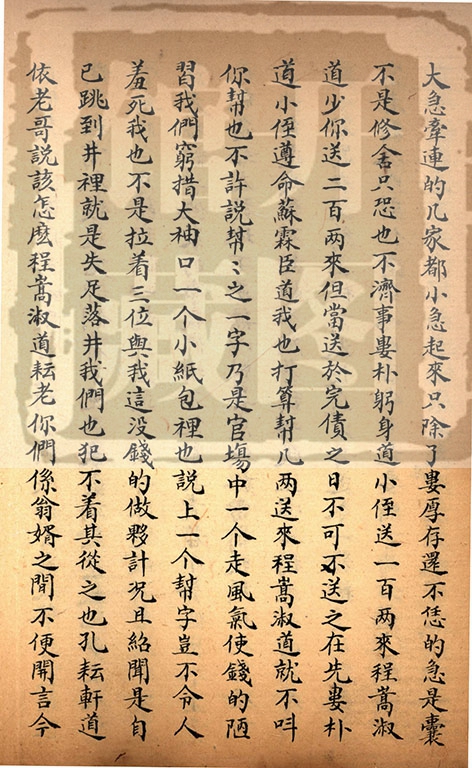 大急牽連的几家都小急起來只除了婁厚存還不恁的急是囊
不是修金只恐也不濟事婁朴躬身道小侄送一百两來程嵩淑
道少你送二百两來但當送於完債之日不可不送之在先婁朴
道小侄遵命蘇霖臣道我也打算幫几两送來程嵩淑道就不呌
你幫也不許説幫〻之一字乃是官塲中一个走風氣使錢的陋
習我們窮措大袖口一个小紙包裡也説上一个幫字豈不令人
羞死我也不是拉着三位與我這没錢的做夥計况且紹聞是自
已跳到井裡就是失足落井我們也犯不着其從之也孔耘軒道
依老哥説該怎麽程嵩淑道耘老你們係翁婿之間不便開言今